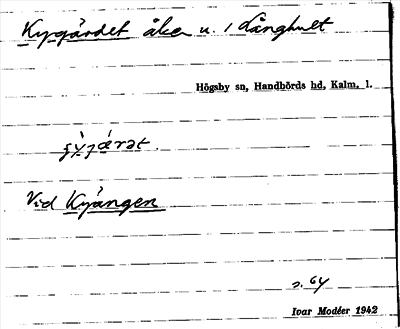 Kygärdet åker u. 1 Långhult
Högsby sn, Handbörds hd, Kalm. l.
Vid Kyängen
s. 64
Ivar Modéer 1942